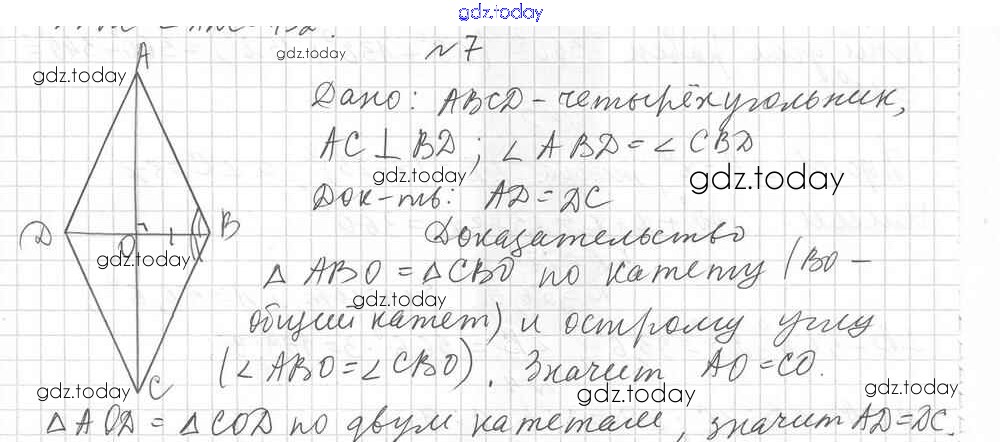 gdz.today
№ 7
gdz.today
A
gdz.today
Дано: ABCD - четырёхугольник,
AC ⊥ BD; ∠ ABD = ∠ CBD
gdz.today
gdz.today
Док-ть: AD = DC
D
O
B
Доказательство
gdz.today
△ ABO = △ CBO по катету (BO -
gdz.today
общий катет) и острому углу
(∠ ABO = ∠ CBO). Значит AO = CO.
gdz.today
C
gdz.today
gdz.today
△ AOD = △ COD по двум катетам, значит AD = DC.